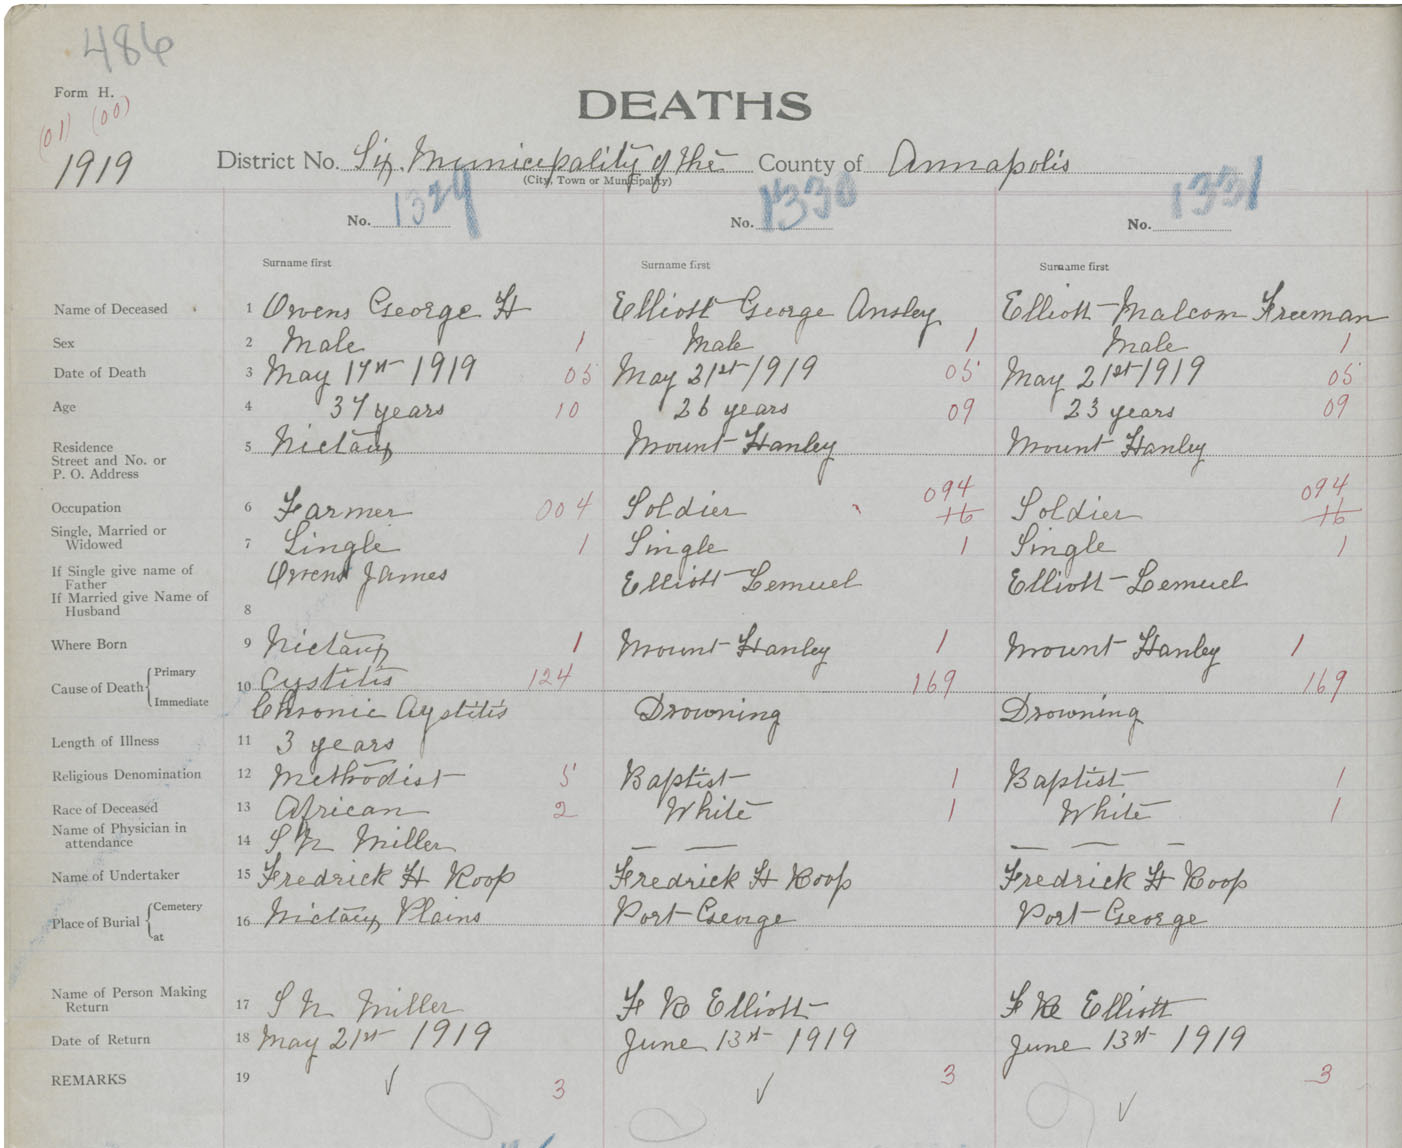 486
Form H.
(01) (00)
DEATHS
1919 District No. Six. Municipality of the County of Annapolis
(City, Town or Municipality)
No. 1329 No. 1330 No. 1331
Surname first Surname first Surname first
Name of Deceased 1 Owens George H Elliott George Ansley Elliott Malcom Freeman
Sex 2 Male 1 Male 1 Male 1
Date of Death 3 May 17st 1919 05 May 21st 1919 05 May 21st 1919 05
Age 4 37 years 10 26 years 09 23 years 09
Residence
Street and No. or
P. O. Address 5 Nictaux Mount Hanley Mount Hanley
094 094
Occupation 6 Farmer 004 Soldier 16 Soldier 16
Single, Married or
Widowed 7 Single 1 Single 1 Single 1
If Single give name of
Father Owens James Elliott Lemuel Elliott Lemuel
If Married give Name of
Husband 8
Where Born 9 Nictaux 1 Mount Hanley 1 Mount Hanley 1
Cause of Death Primary 10 Cystitis 124 169 169
Immediate Chronic Cystitis Drowning Drowning
Length of Illness 11 3 years
Religious Denomination 12 Methodist 5 Baptist 1 Baptist 1
Race of Deceased 13 African 2 White 1 White 1
Name of Physician in
attendance 14 S N Miller — — — — —
Name of Undertaker 15 Fredrick H Roop Fredrick H Roop Fredrick H Roop
Place of Burial Cemetery
at 16 Nictaux Plains Port George Port George
Name of Person Making
Return 17 S N Miller F R Elliott F R Elliott
Date of Return 18 May 21st 1919 June 13st 1919 June 13st 1919
REMARKS 19 ✓ 3 ✓ 3 ✓ 3